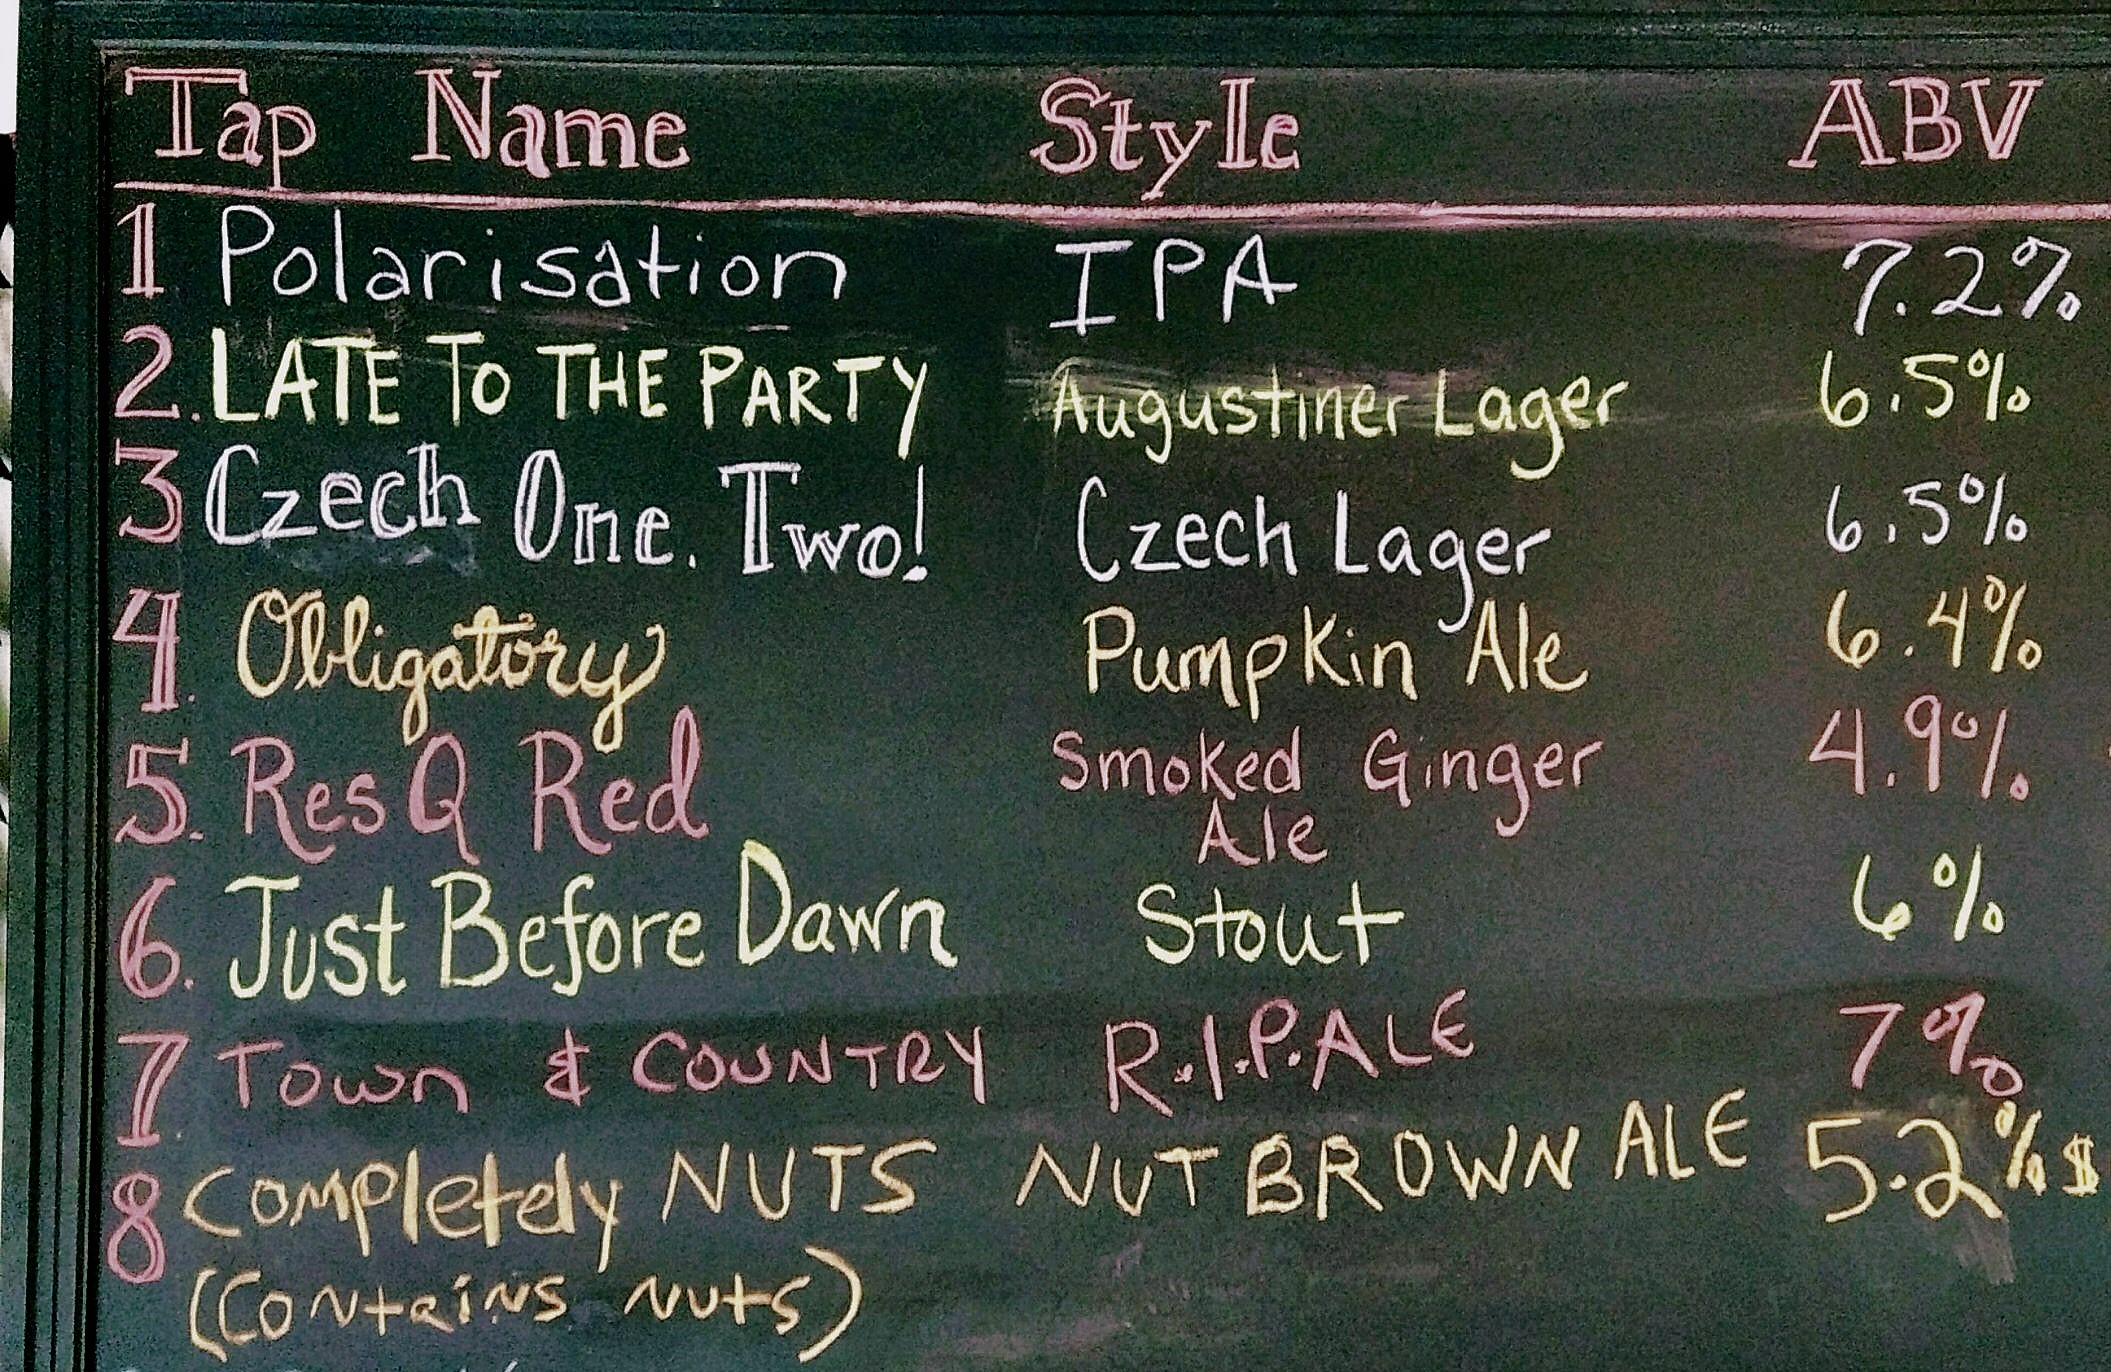 Tap Name Style ABV
1 Polarisation IPA 7.2%
2. LATE To THE PARTY Augustiner Lager 6.5%
3 Czech One. Two! Czech Lager 6.5%
4. Obligatory Pumpkin Ale 6.4%
5. ResQ Red Smoked Ginger 4.9%
Ale
6. Just Before Dawn Stout 6%
7. Town & COUNTRY R.I.P.ALE 7%
8 Completely NUTS NUT BROWN ALE 5.2% $
(Contains Nuts)